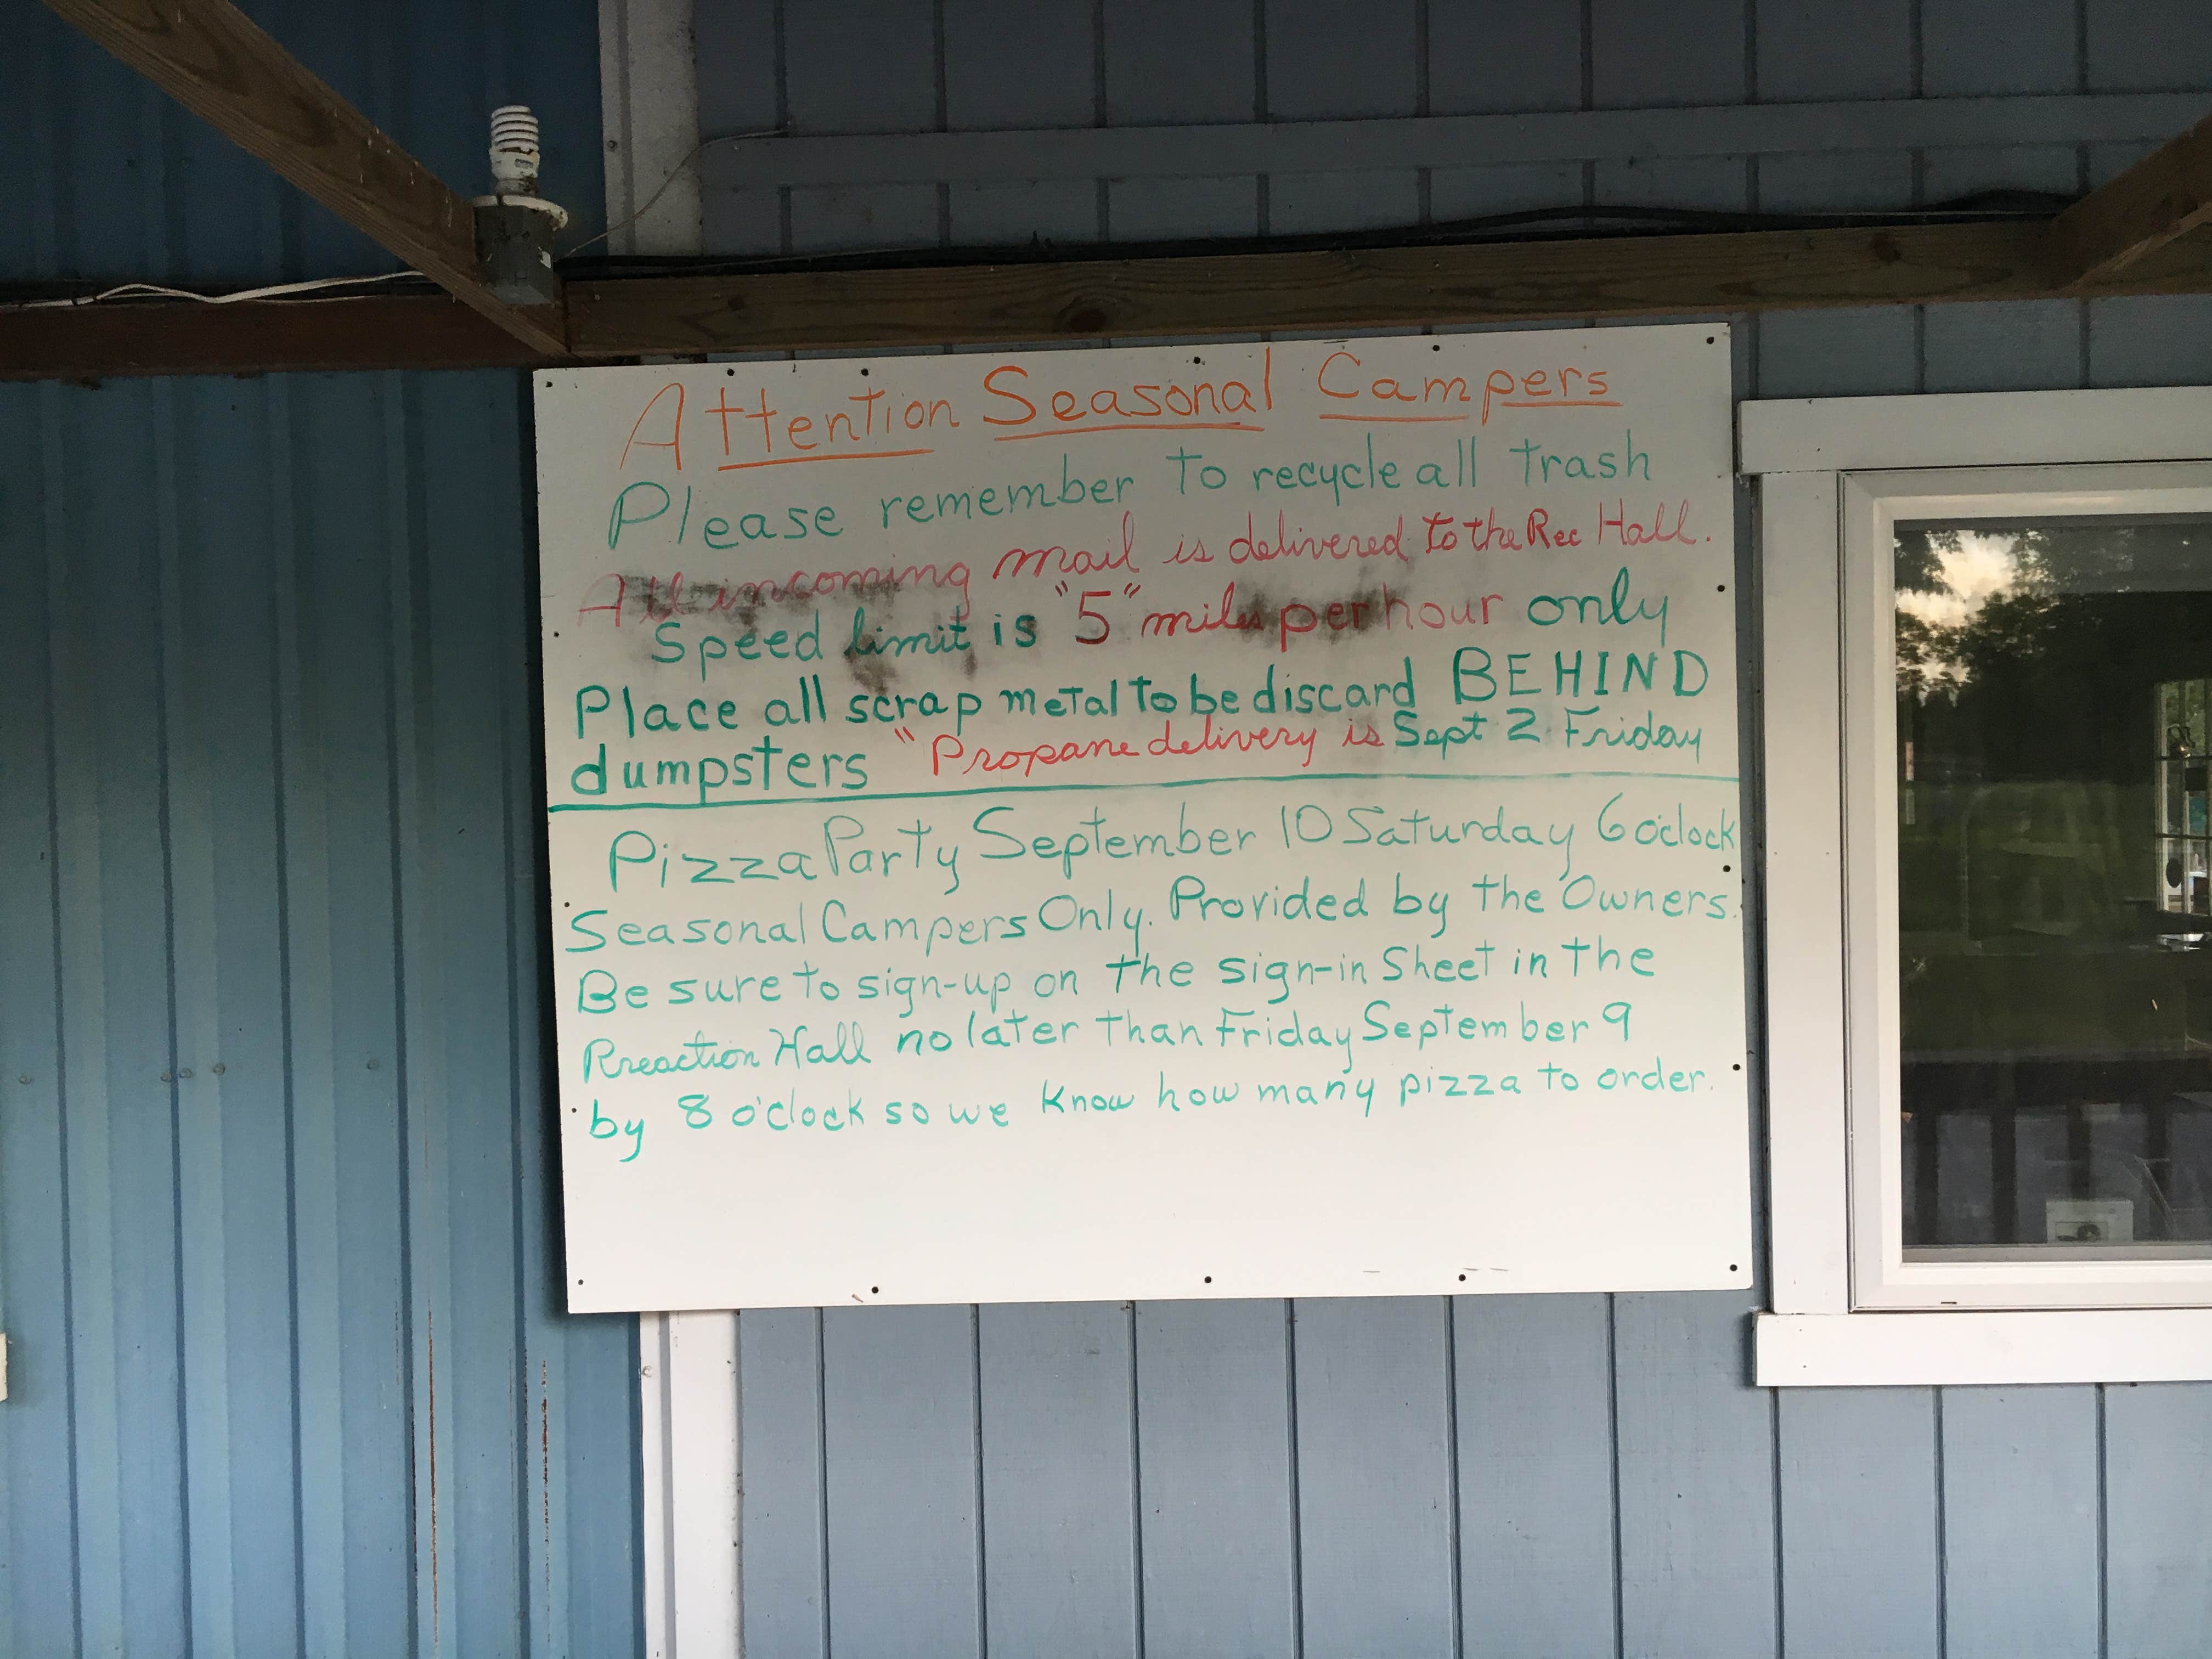 Attention Seasonal Campers
Please remember to recycle all trash
All incoming mail is delivered to the Rec Hall.
Speed limit is "5" miles per hour only
Place all scrap metal to be discard BEHIND
dumpsters "Propane delivery is Sept 2 Friday
Pizza Party September 10 Saturday 6 o'clock
Seasonal Campers Only. Provided by the Owners.
Be sure to sign-up on the sign-in Sheet in the
Rreaction Hall no later than Friday September 9
by 8 o'clock so we know how many pizza to order.